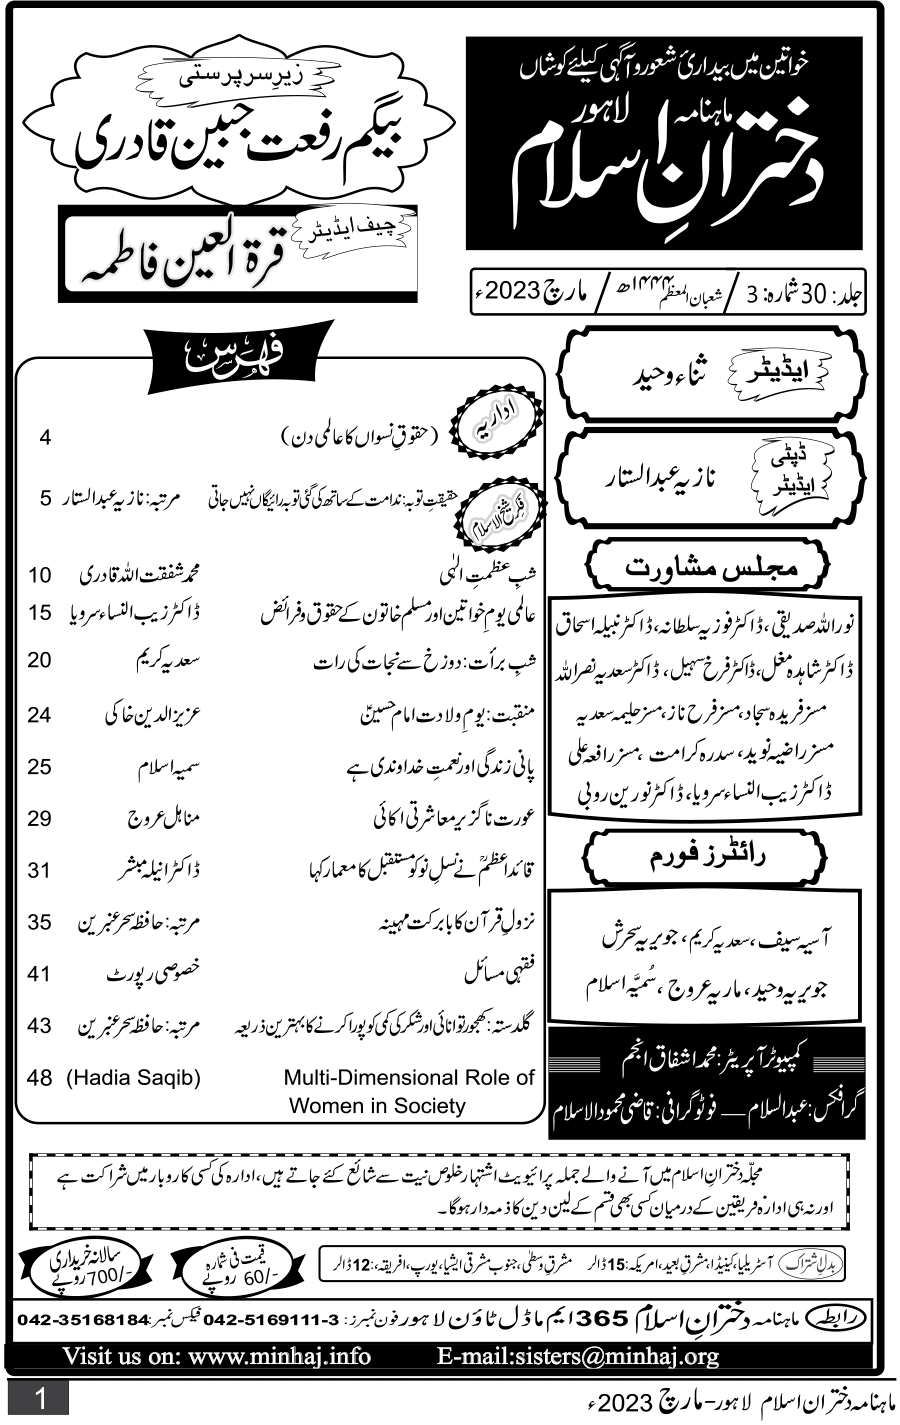 خواتین میں بیداریٔ شعور و آگہی کیلئے کوشاں
ماہنامہ لاہور
دخترانِ اسلام
زیرِ سرپرستی
بیگم رفعت جبین قادری
چیف ایڈیٹر
قرۃ العین فاطمہ
جلد: 30 شمارہ: 3 / شعبان المعظم ۱۴۴۴ھ / مارچ 2023ء
ایڈیٹر
ثناء وحید
ڈپٹی ایڈیٹر
نازیہ عبدالستار
مجلس مشاورت
نوراللہ صدیقی، ڈاکٹر فوزیہ سلطانہ، ڈاکٹر نبیلہ اسحاق
ڈاکٹر شاہدہ مغل، ڈاکٹر فرخ سہیل، ڈاکٹر سعدیہ نصراللہ
مسز فریدہ سجاد، مسز فرح ناز، مسز حلیمہ سعدیہ
مسز راضیہ نوید، سدرہ کرامت، مسز رافعہ علی
ڈاکٹر زیب النساء سرویا، ڈاکٹر نورین روبی
رائٹرز فورم
آسیہ سیف، سعدیہ کریم، جویریہ سحرش
جویریہ وحید، ماریہ عروج، سُمیَّہ اسلام
کمپیوٹر آپریٹر: محمد اشفاق انجم
گرافکس: عبدالسلام — فوٹوگرافی: قاضی محمود الاسلام
فہرس
اداریہ
(حقوقِ نسواں کا عالمی دن) 4
فکرِ شیخ الاسلام
حقیقتِ توبہ: ندامت کے ساتھ کی گئی توبہ رائیگاں نہیں جاتی مرتبہ: نازیہ عبدالستار 5
شبِ عظمتِ الٰہی محمد شفقت اللہ قادری 10
عالمی یومِ خواتین اور مسلم خاتون کے حقوق و فرائض ڈاکٹر زیب النساء سرویا 15
شبِ برأت: دوزخ سے نجات کی رات سعدیہ کریم 20
منقبت: یومِ ولادت امام حسینؑ عزیز الدین خاکی 24
پانی زندگی اور نعمتِ خداوندی ہے سمیہ اسلام 25
عورت ناگزیر معاشرتی اکائی مناہل عروج 29
قائداعظمؒ نے نسلِ نو کو مستقبل کا معمار کہا ڈاکٹر انیلہ مبشر 31
نزولِ قرآن کا بابرکت مہینہ مرتبہ: حافظہ سحر عنبرین 35
فقہی مسائل خصوصی رپورٹ 41
گلدستہ: کھجور توانائی اور شکر کی کمی کو پورا کرنے کا بہترین ذریعہ مرتبہ: حافظہ سحر عنبرین 43
Multi-Dimensional Role of (Hadia Saqib) 48
Women in Society
مجلّہ دخترانِ اسلام میں آنے والے جملہ پرائیویٹ اشتہار خلوص نیت سے شائع کئے جاتے ہیں، ادارہ کی کسی کاروبار میں شراکت ہے
اور نہ ہی ادارہ فریقین کے درمیان کسی بھی قسم کے لین دین کا ذمہ دار ہوگا۔
بدلِ اشتراک آسٹریلیا، کینیڈا، مشرقِ بعید، امریکہ: 15 ڈالر مشرقِ وسطیٰ، جنوب مشرقی ایشیا، یورپ، افریقہ: 12 ڈالر
قیمت فی شمارہ
60/- روپے
سالانہ خریداری
700/- روپے
رابطہ ماہنامہ دخترانِ اسلام 365 ایم ماڈل ٹاؤن لاہور فون نمبرز: 042-5169111-3 فیکس نمبر: 042-35168184
Visit us on: www.minhaj.info E-mail:sisters@minhaj.org
1
ماہنامہ دختران اسلام لاہور-مارچ 2023ء